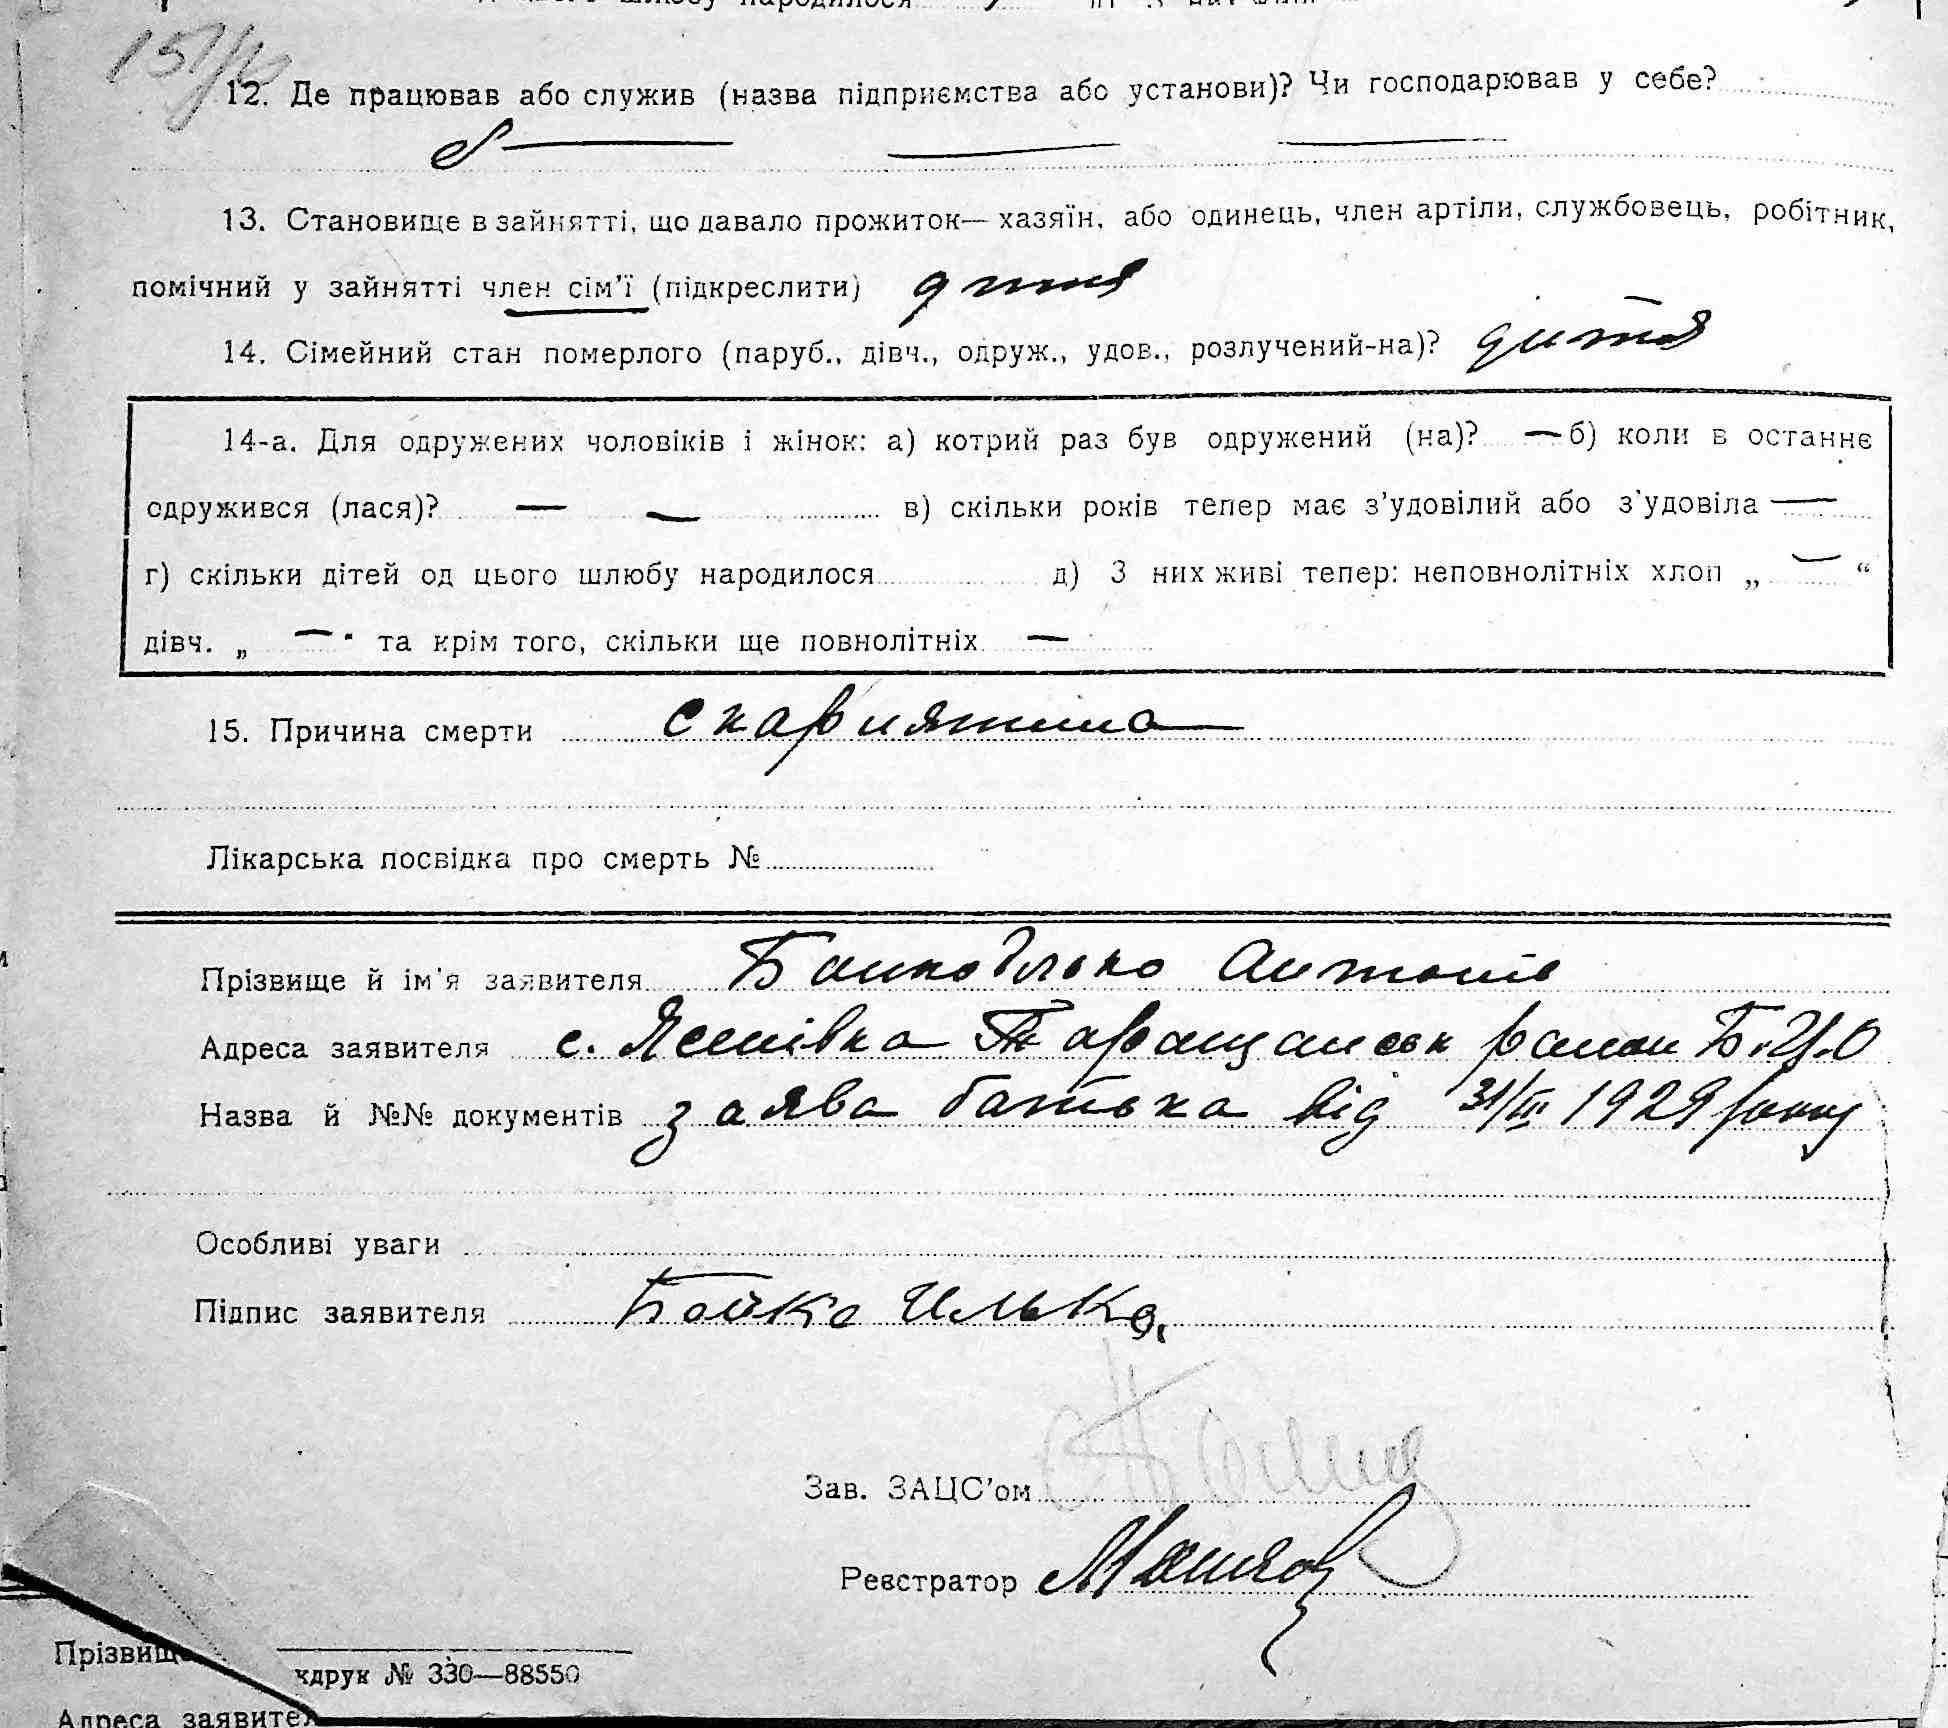 шлюбу народилося
151/10
12. Де працював або служив (назва підприємства або установи)? Чи господарював у себе?
13. Становище в зайнятті, що давало прожиток— хазяїн, або одинець, член артіли, службовець, робітник,
помічний у зайнятті член сім'ї (підкреслити) дитя
14. Сімейний стан померлого (паруб., дівч., одруж., удов., розлучений-на)? дитя
14-а. Для одружених чоловіків і жінок: а) котрий раз був одружений (на)? — б) коли в останнє
одружився (лася)? — — в) скільки років тепер має з'удовілий або з'удовіла —
г) скільки дітей од цього шлюбу народилося д) З них живі тепер: неповнолітніх хлоп „ — “
дівч. „ — " та крім того, скільки ще повнолітніх —
15. Причина смерти скарлятина
Лікарська посвідка про смерть №
Прізвище й ім'я заявителя Бойко Ілько Антонів
Адреса заявителя с. Ясенівка Таращанськ район Б.Ц.О
Назва й №№ документів заява батька від 31/III 1929 року
Особливі уваги
Підпис заявителя Бойко Илько,
Зав. ЗАЦС'ом
Реєстратор
Прізвище
кдрук № 330—88550
Адреса заявител